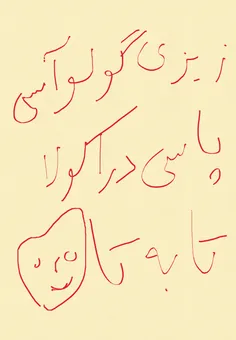 زیزی گولو آسی
پاسی دراکولا
تا به تا